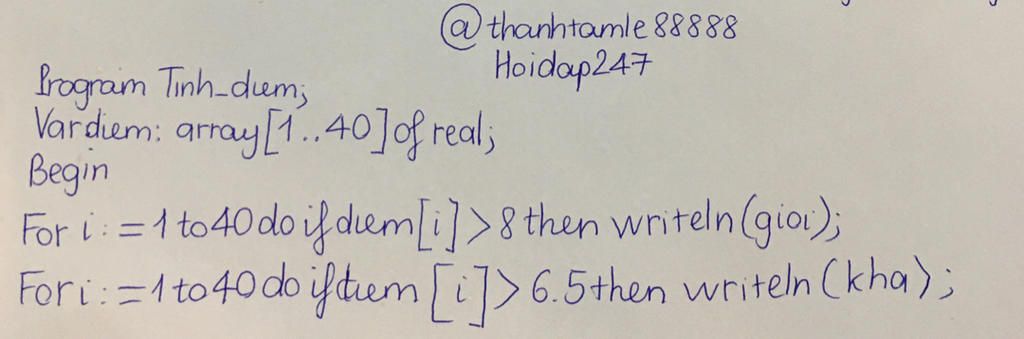 @thanhtamle88888
Hoidap247
Program Tinh_diem;
Var diem: array[1..40] of real;
Begin
For i:=1 to 40 do if diem[i]>8 then writeln(gioi);
For i:=1 to 40 do if diem [i]> 6.5 then writeln (kha);